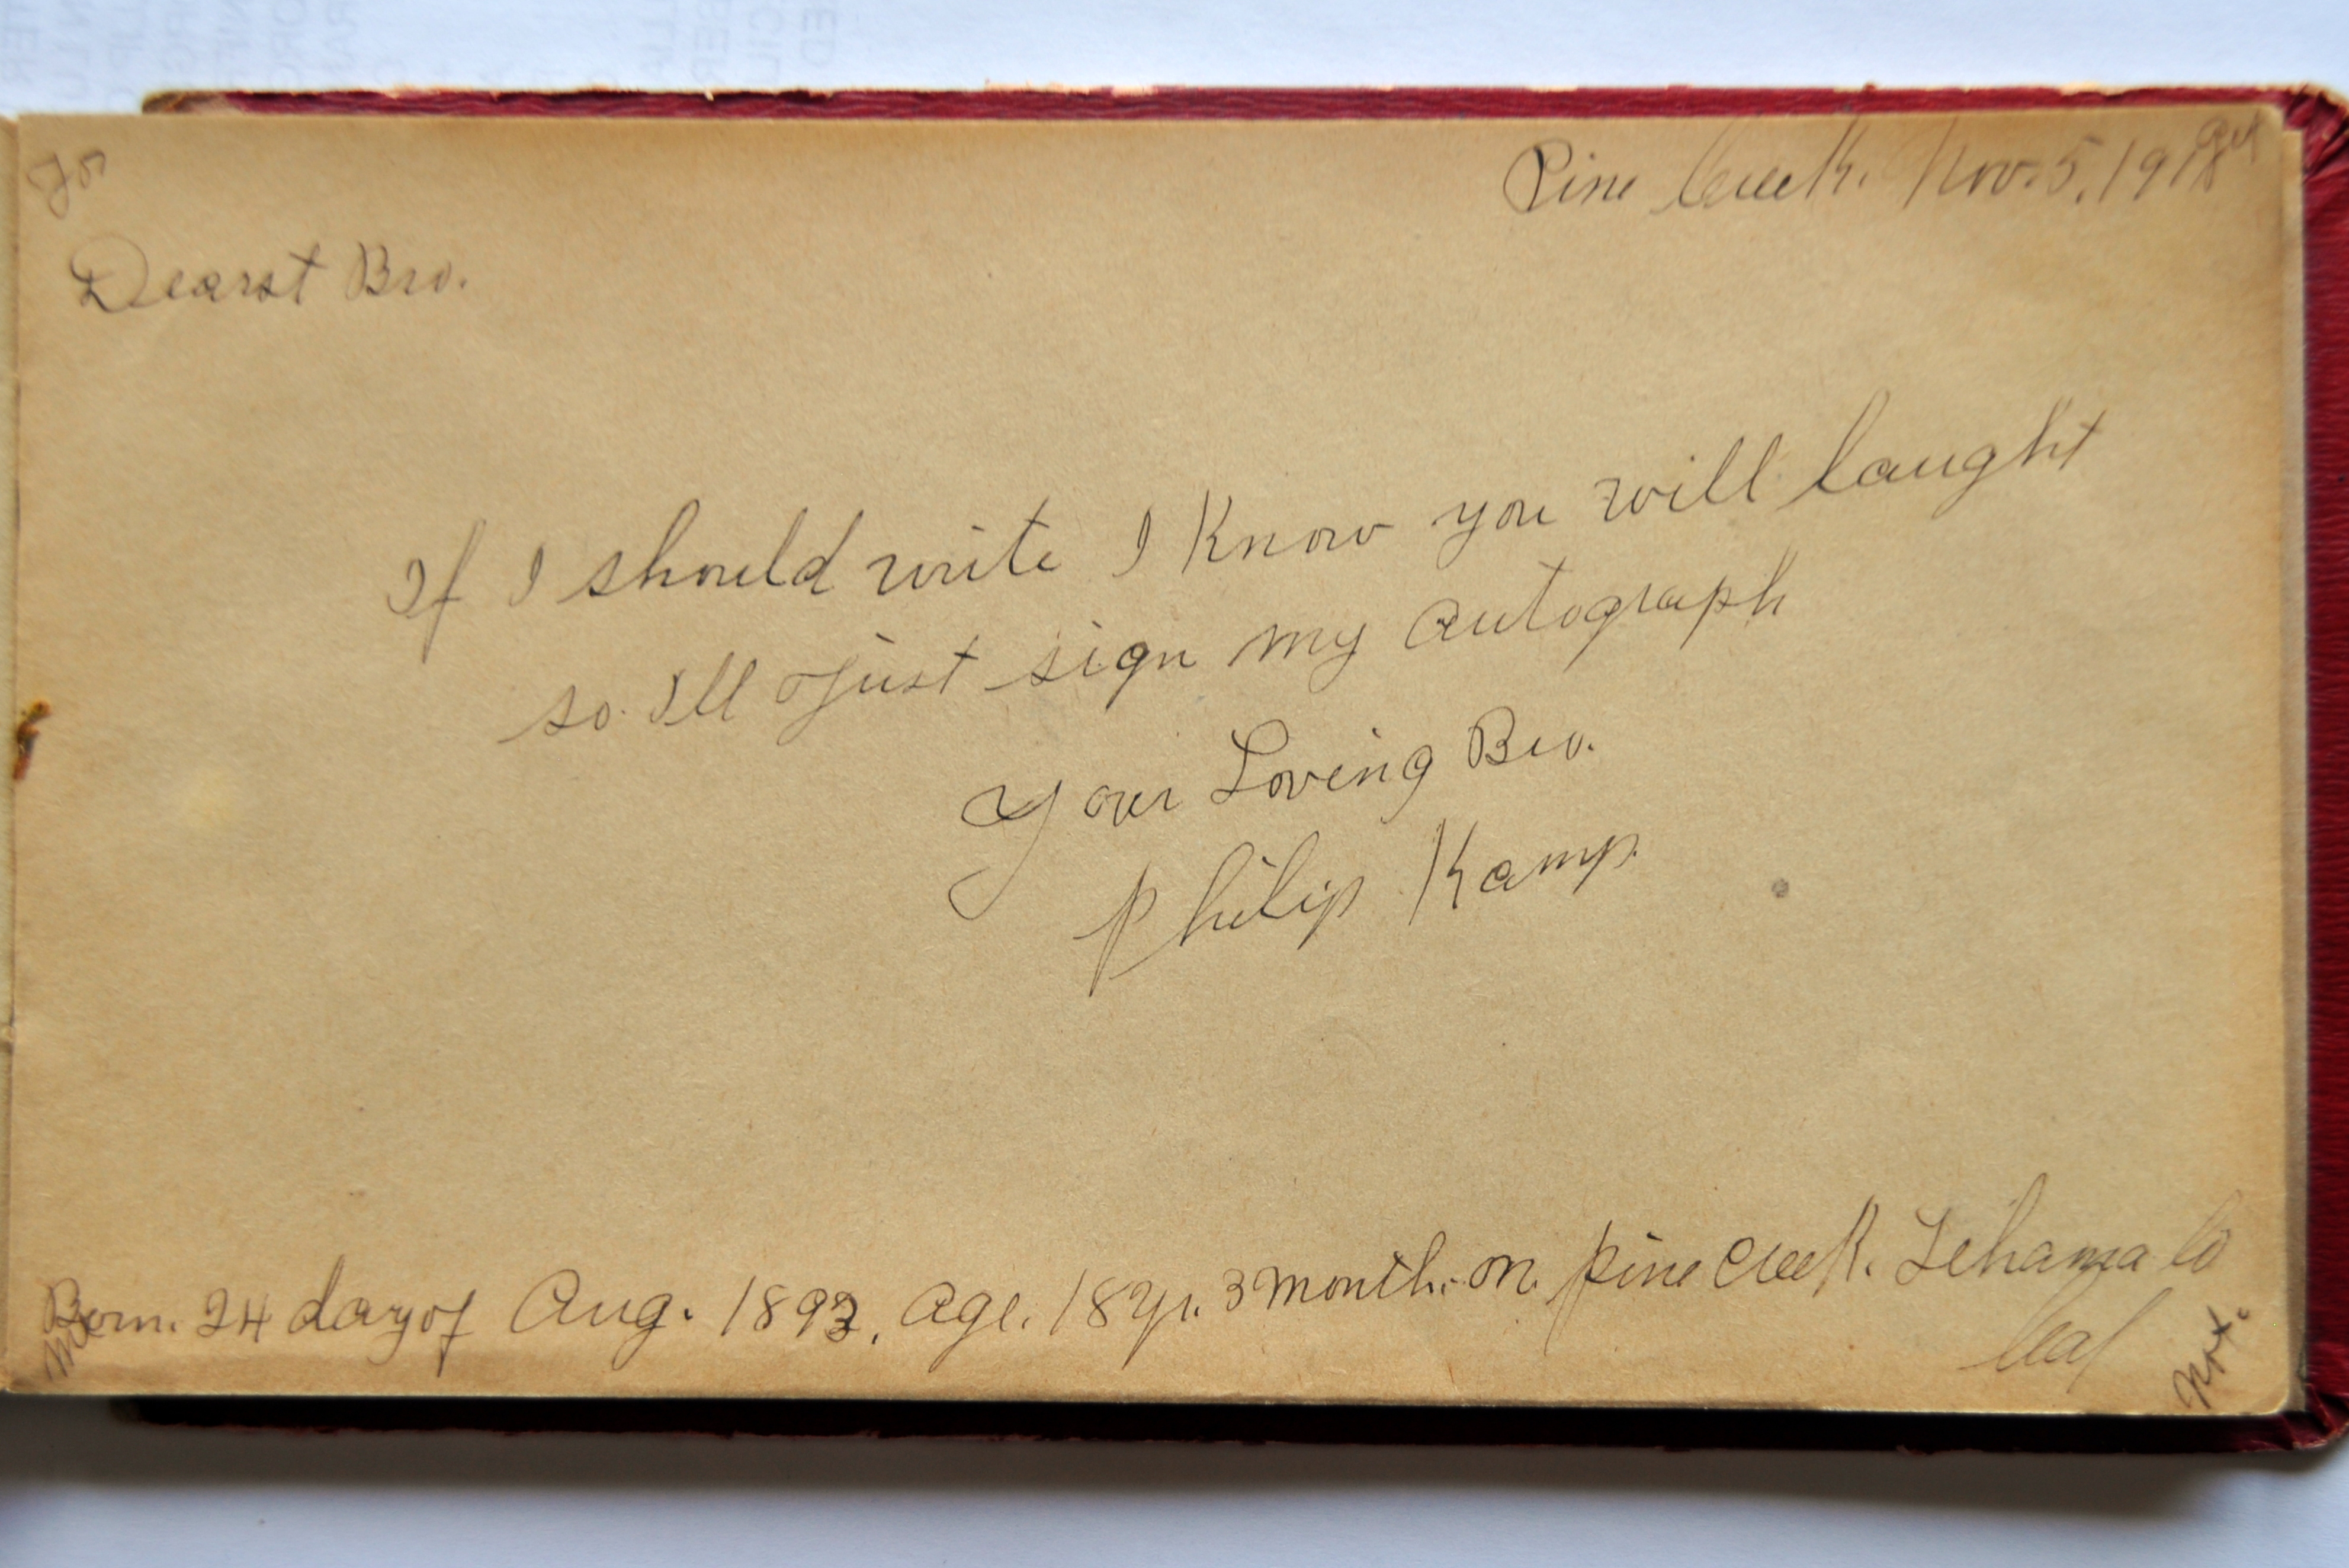 For get
Pine Creek. Nov. 5, 191
Dearst Bro.
If I should write I Know you will laught
so. I'll just sign my autograph
Your Loving Bro.
Philip Kamp.
Born. 24 day of Aug. 1892. age. 18 yr. 3 month. on. pine creek. Tehama Co
Cal
Me Not.